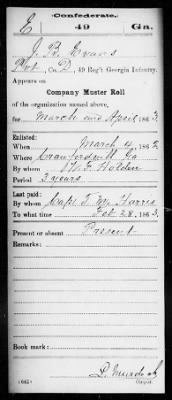 Confederate.
E 49 Ga.
J. B. Evans
Pvt, Co. D, 49 Reg't Georgia Infantry.
Appears on
Company Muster Roll
of the organization named above,
for March and April, 1863.
Enlisted:
When March 4, 1862
Where Crawfordville Ga
By whom W. F. Holden
Period 3 years
Last paid:
By whom Capt T. W. Harris
To what time Feb 28, 1863.
Present or absent Present
Remarks:
Book mark:
(642) Copyist.